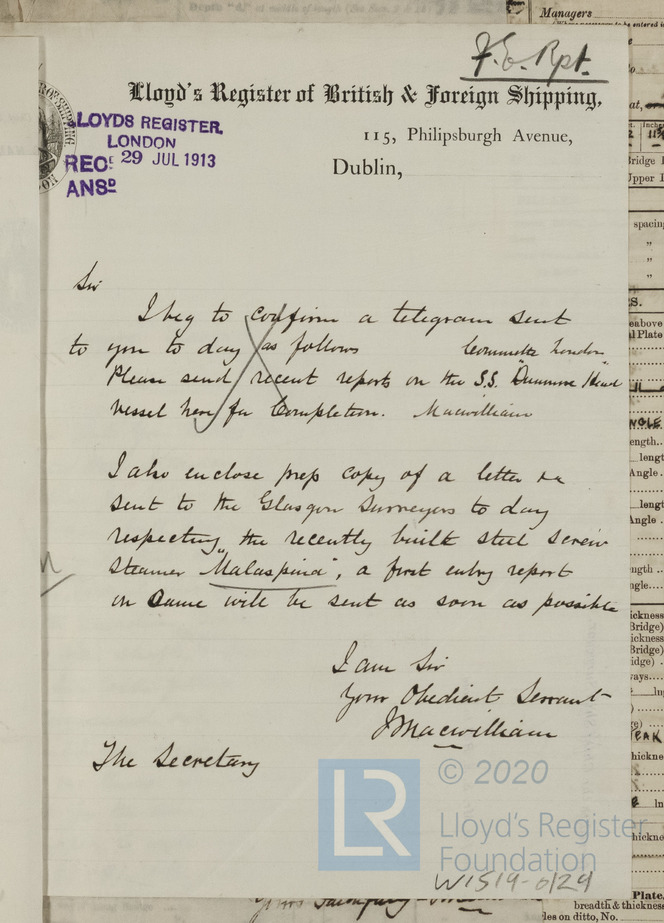 Managers
F.E. Rpt.
Lloyd's Register of British & Foreign Shipping,
115, Philipsburgh Avenue,
Dublin,
LLOYDS REGISTER,
LONDON
REC^D 29 JUL 1913
ANS^D
Sir
I beg to confirm a telegram sent
to you to day as follows Committee London
Please send recent reports on the S.S. "Dunmore Head
vessel here for Completion. Macwilliam
I also enclose press copy of a letter
sent to the Glasgow Surveyors to day
respecting the recently built steel screw
steamer "Malaspina", a first entry report
on same will be sent as soon as possible
I am Sir
Your Obedient Servant
J Macwilliam
The Secretary
LR
© 2020
Lloyd's Register
Foundation
W1519-0129
Plate
breadth & thickness
les on ditto, No.